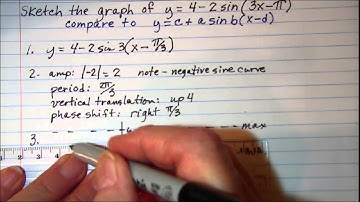 Sketch the graph of y = 4 - 2 sin(3x - π)
compare to y = c + a sin b(x-d)
1. y = 4 - 2 sin 3(x - π/3)
2. amp: |-2| = 2 note - negative sine curve
period: 2π/3
vertical translation: up 4
phase shift: right π/3
3. max